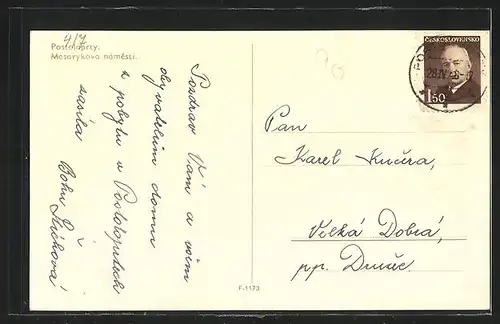 4/7
Postoloprty.
Masarykovo náměstí.
Pozdrav Vám a všem
obyvatelům domu
z pobytu v Postoloprtech
zasílá Bohu
F-1173
ČESKOSLOVENSKO
28.IV.48-
1.50
Pan
Karel Kučera,
Velká Dobrá,
pp.